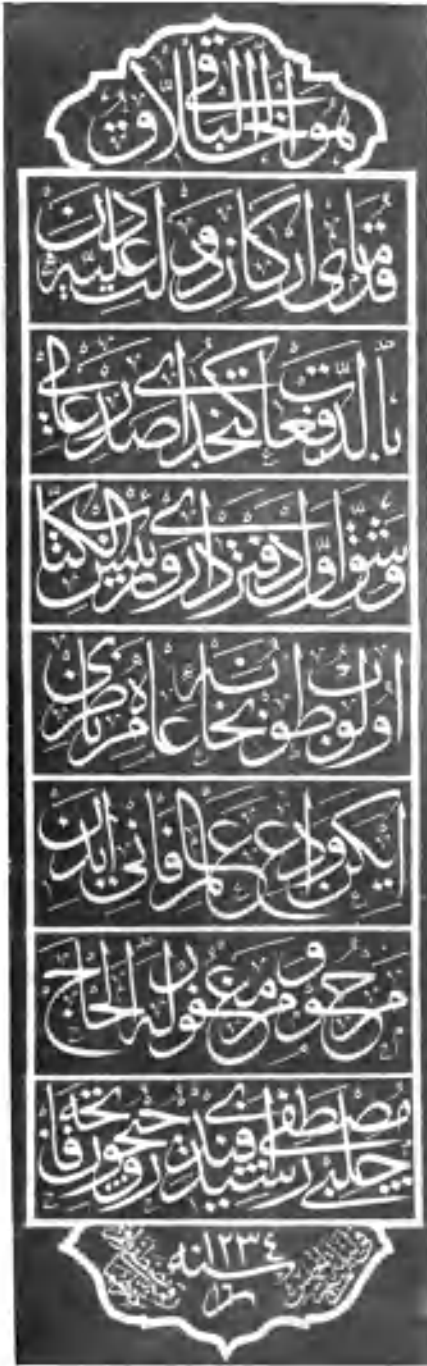 هو الخلاق الباقی
قدمای ارکان دولت علیه دن
بالدفعات کتخدای صدر عالی
وشق اول و دفترداری و رئیس الکتاب
اولوب طوپخانه عامره ناظری
ایکن وداع عالم فانی ایدن
مرحوم و مغفور له الحاج
مصطفی رشید افندی چلبی روحیچون فاتحه
سنه ١٢٣٤